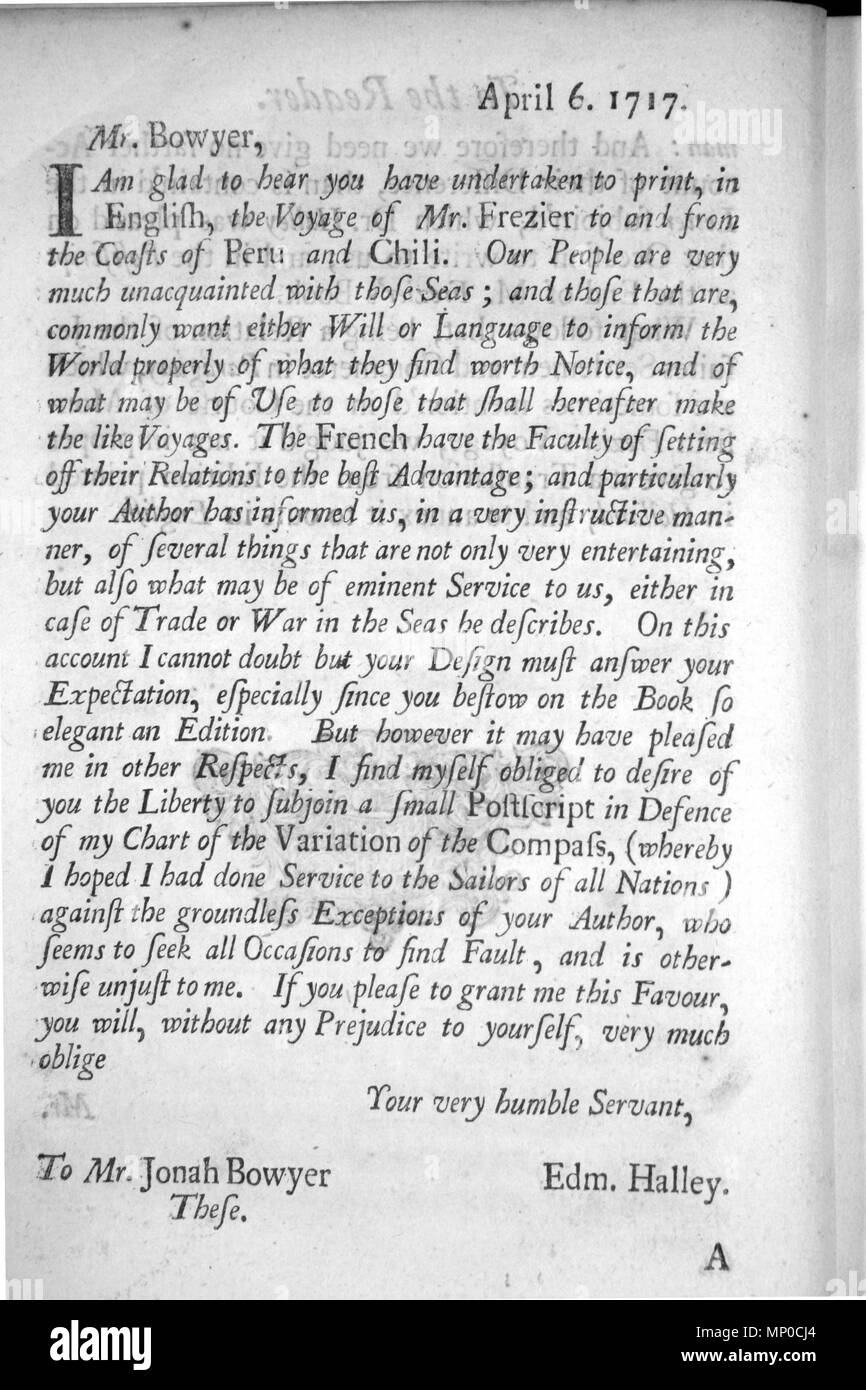 April 6. 1717.
Mr. Bowyer,
I Am glad to hear you have undertaken to print, in
Engliſh, the Voyage of Mr. Frezier to and from
the Coaſts of Peru and Chili. Our People are very
much unacquainted with thoſe Seas; and thoſe that are,
commonly want either Will or Language to inform the
World properly of what they find worth Notice, and of
what may be of Uſe to thoſe that ſhall hereafter make
the like Voyages. The French have the Faculty of ſetting
off their Relations to the beſt Advantage; and particularly
your Author has informed us, in a very inſtructive man-
ner, of ſeveral things that are not only very entertaining,
but alſo what may be of eminent Service to us, either in
caſe of Trade or War in the Seas he deſcribes. On this
account I cannot doubt but your Deſign muſt anſwer your
Expectation, eſpecially ſince you beſtow on the Book ſo
elegant an Edition. But however it may have pleaſed
me in other Reſpects, I find myſelf obliged to deſire of
you the Liberty to ſubjoin a ſmall Poſtſcript in Defence
of my Chart of the Variation of the Compaſs, (whereby
I hoped I had done Service to the Sailors of all Nations)
againſt the groundleſs Exceptions of your Author, who
ſeems to ſeek all Occaſions to find Fault, and is other-
wiſe unjuſt to me. If you pleaſe to grant me this Favour,
you will, without any Prejudice to yourſelf, very much
oblige
Your very humble Servant,
To Mr. Jonah Bowyer Edm. Halley.
Theſe.
A
alamy
Image ID: MP0CJ4
www.alamy.com